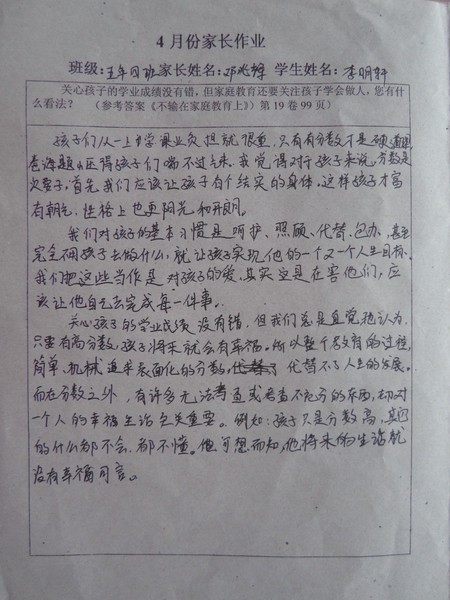 4月份家长作业
班级:五年四班家长姓名:邓兆辉 学生姓名:李明轩
关心孩子的学业成绩没有错，但家庭教育还要关注孩子学会做人，您有什
么看法？（参考答案《不输在家庭教育上》）第19卷99页）
孩子们从一上学课业负担就很重，只有有分数才是硬道理
卷海题山压得孩子们喘不过气来。我觉得对于孩子来说，分数是
次要子，首先我们应该让孩子有个结实的身体。这样孩子才富
有朝气，性格上也更阳光和开朗。
我们对孩子的基本习惯是呵护、照顾、代替、包办，甚至
完全用孩子去做什么，就让孩子实现他的一个又一个人生目标。
我们把这些当作是对孩子的爱，其实这是在害他们，应
该让他自己去完成每一件事。
关心孩子的学业成绩没有错，但我们总是直觉地认为，
只要有高分数，孩子将来就会有幸福。所以整个教育的过程，
简单、机械追求表面化的分数，代替不了人生的发展。
而在分数之外，有许多无法考查或考查不充分的东西，却对
一个人的幸福生活至关重要。例如：孩子只是分数高，其它
的什么都不会，都不懂。他可想而知，他将来的生活就
没有幸福可言。